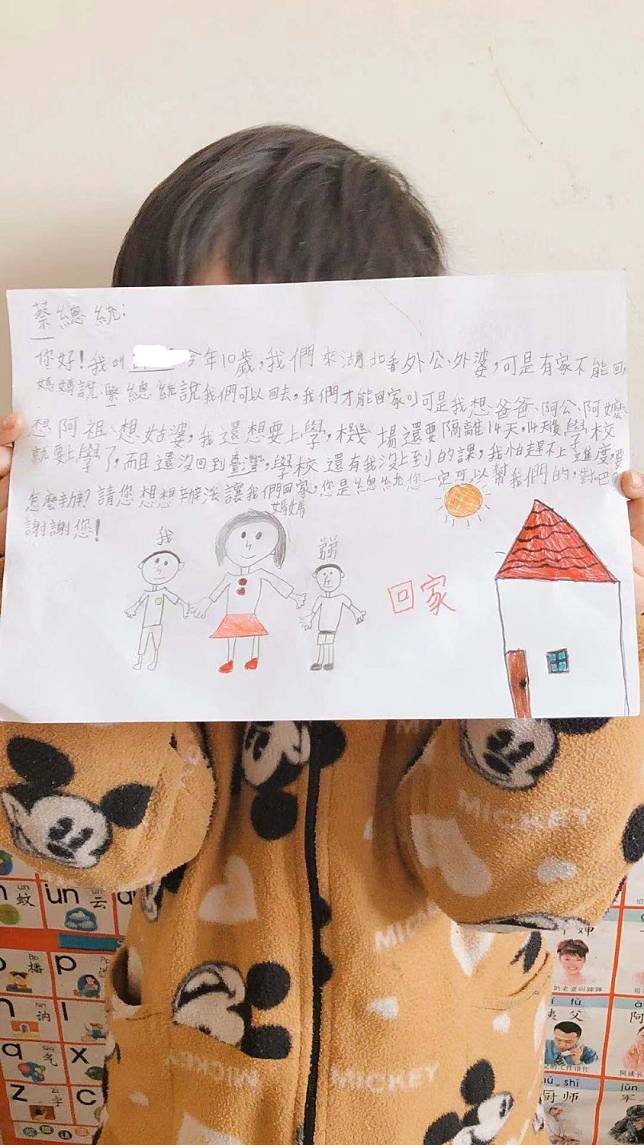 蔡總統:
你好!我叫 今年10歲,我們來湖北看外公、外婆,可是有家不能回,
媽媽說,要總統說我們可以回去,我們才能回家,可是我想爸爸、阿公、阿嬤、
想阿祖、想姑婆,我還想要上學,機場還要隔離14天,14天後,學校
就要上學了,而且還沒回到臺灣,學校還有我沒上到的課,我怕趕不上進度,
怎麼辦?請您想想辦法讓我們回家,您是總統您一定可以幫我們的,對吧
謝謝您!
媽媽
我
弟弟
回家
MICKEY
MICKEY
MICKEY
ün
蚊
un
云
p
播
n
讷
l
q
气
x
z
字
c
fu
父
阿
shī
厨师
jūn
军